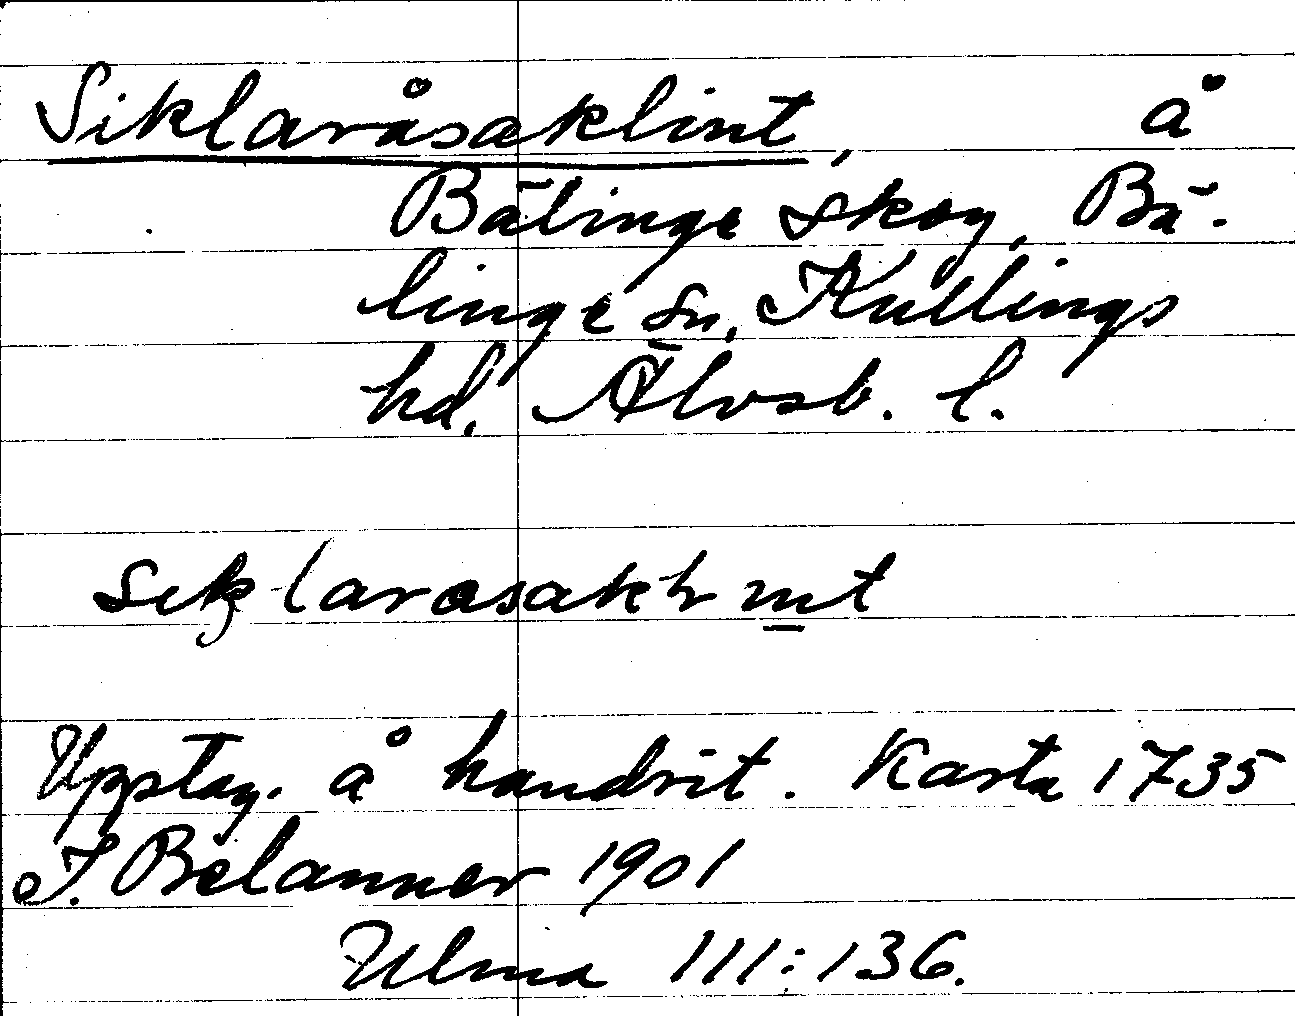 Siklaråsaklint, å
Bälinge skog, Bä-
linge sn, Kullings
hd, Älvsb. l.
siklarasaklint
Upptag. å handrit. Karta 1735
T. Belanner 1901
Ulma 111:136.